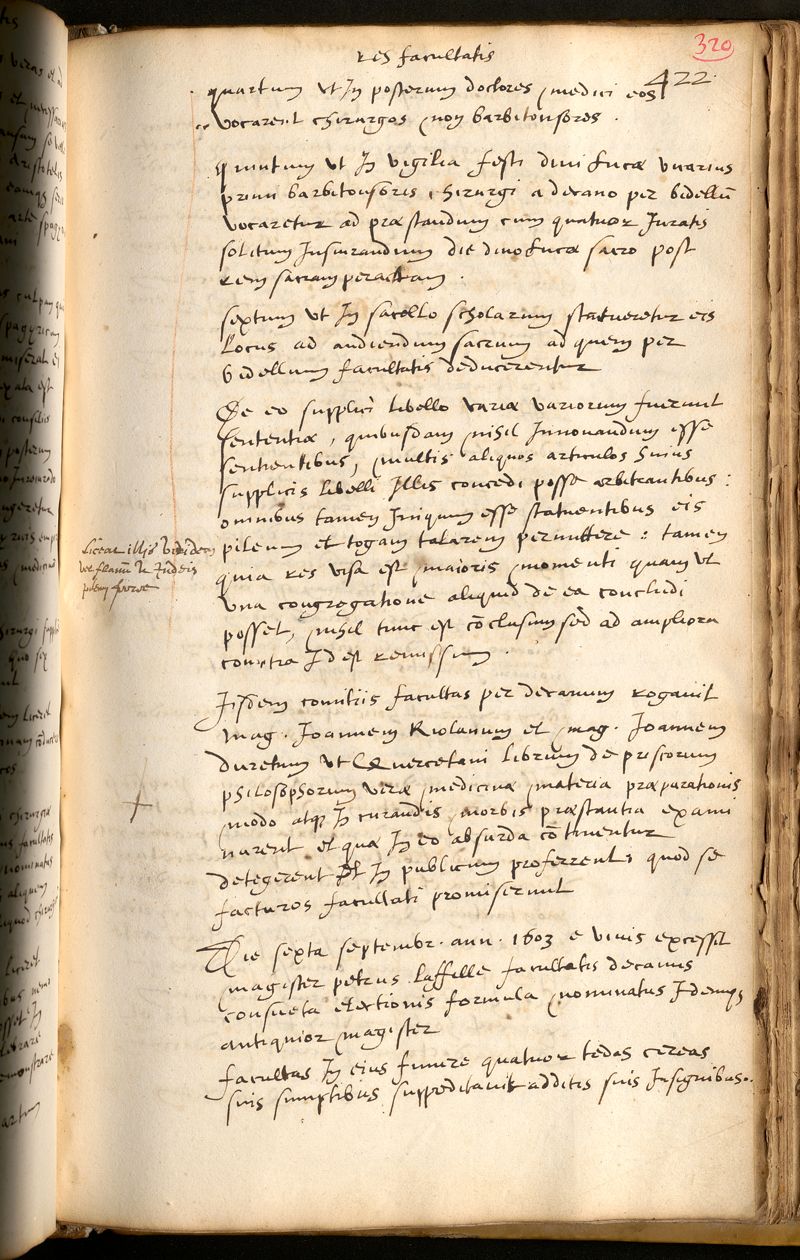 320
res facultatis
422
quartum ut in posterum doctores medici eos
vocarent chirurgos non barbitonsores.
quintum ut in vigilia festi divi Lucæ vicarius
primi barbitonsoris chirurgi a decano per bidellū
vocaretur ad præstandum cum quatuor Juratis
solitum Jusiurandum die divo Lucæ sacro post
rem sacram peractam.
sextum ut in sacello scholarum statueretur eis
Locus ad audiendum sacrum ad quem per
bidellum facultatis deducerentur
De eo supplici libello variæ variorum fuerunt
sententiæ, quibusdam nihil Innovandum esse
sentientibus, multis aliquos articulos huius
supplicis libelli Illis concedi posse arbitrantibus:
omnibus tamen Iniquum esse statuentibus eis
pileum et togam talarem permittere: tamen
quia res visa est maioris momenti quam ut
una congregatione aliquid de ea concludi
posset, nihil tunc est cōclusum sed ad ampliora
comitia Id est remissum.
Liceat illis
Iisdem comitiis facultas per decanum rogavit
mag. Joannem Riolanum et mag. Joannem
duretum ut Quercetani librum de priscorum
philosophorum veræ medicinæ materia præparationis
modo atq; In curandis morbis præstantia exami
narent et quæ In eo absurda cōtinentur
detegerent et In publicum proferrent: quod se
facturos facultati promiserunt
Die sexta septembr. ann. 1603 e vivis excessit
magister petrus Laffille facultatis decanus
consueta electionis formula nominatus Idemq;
antiquior magister
facultas In eius funere quatuor tedas cereas
suis sumptibus suppeditavit additis suis Insignibus.